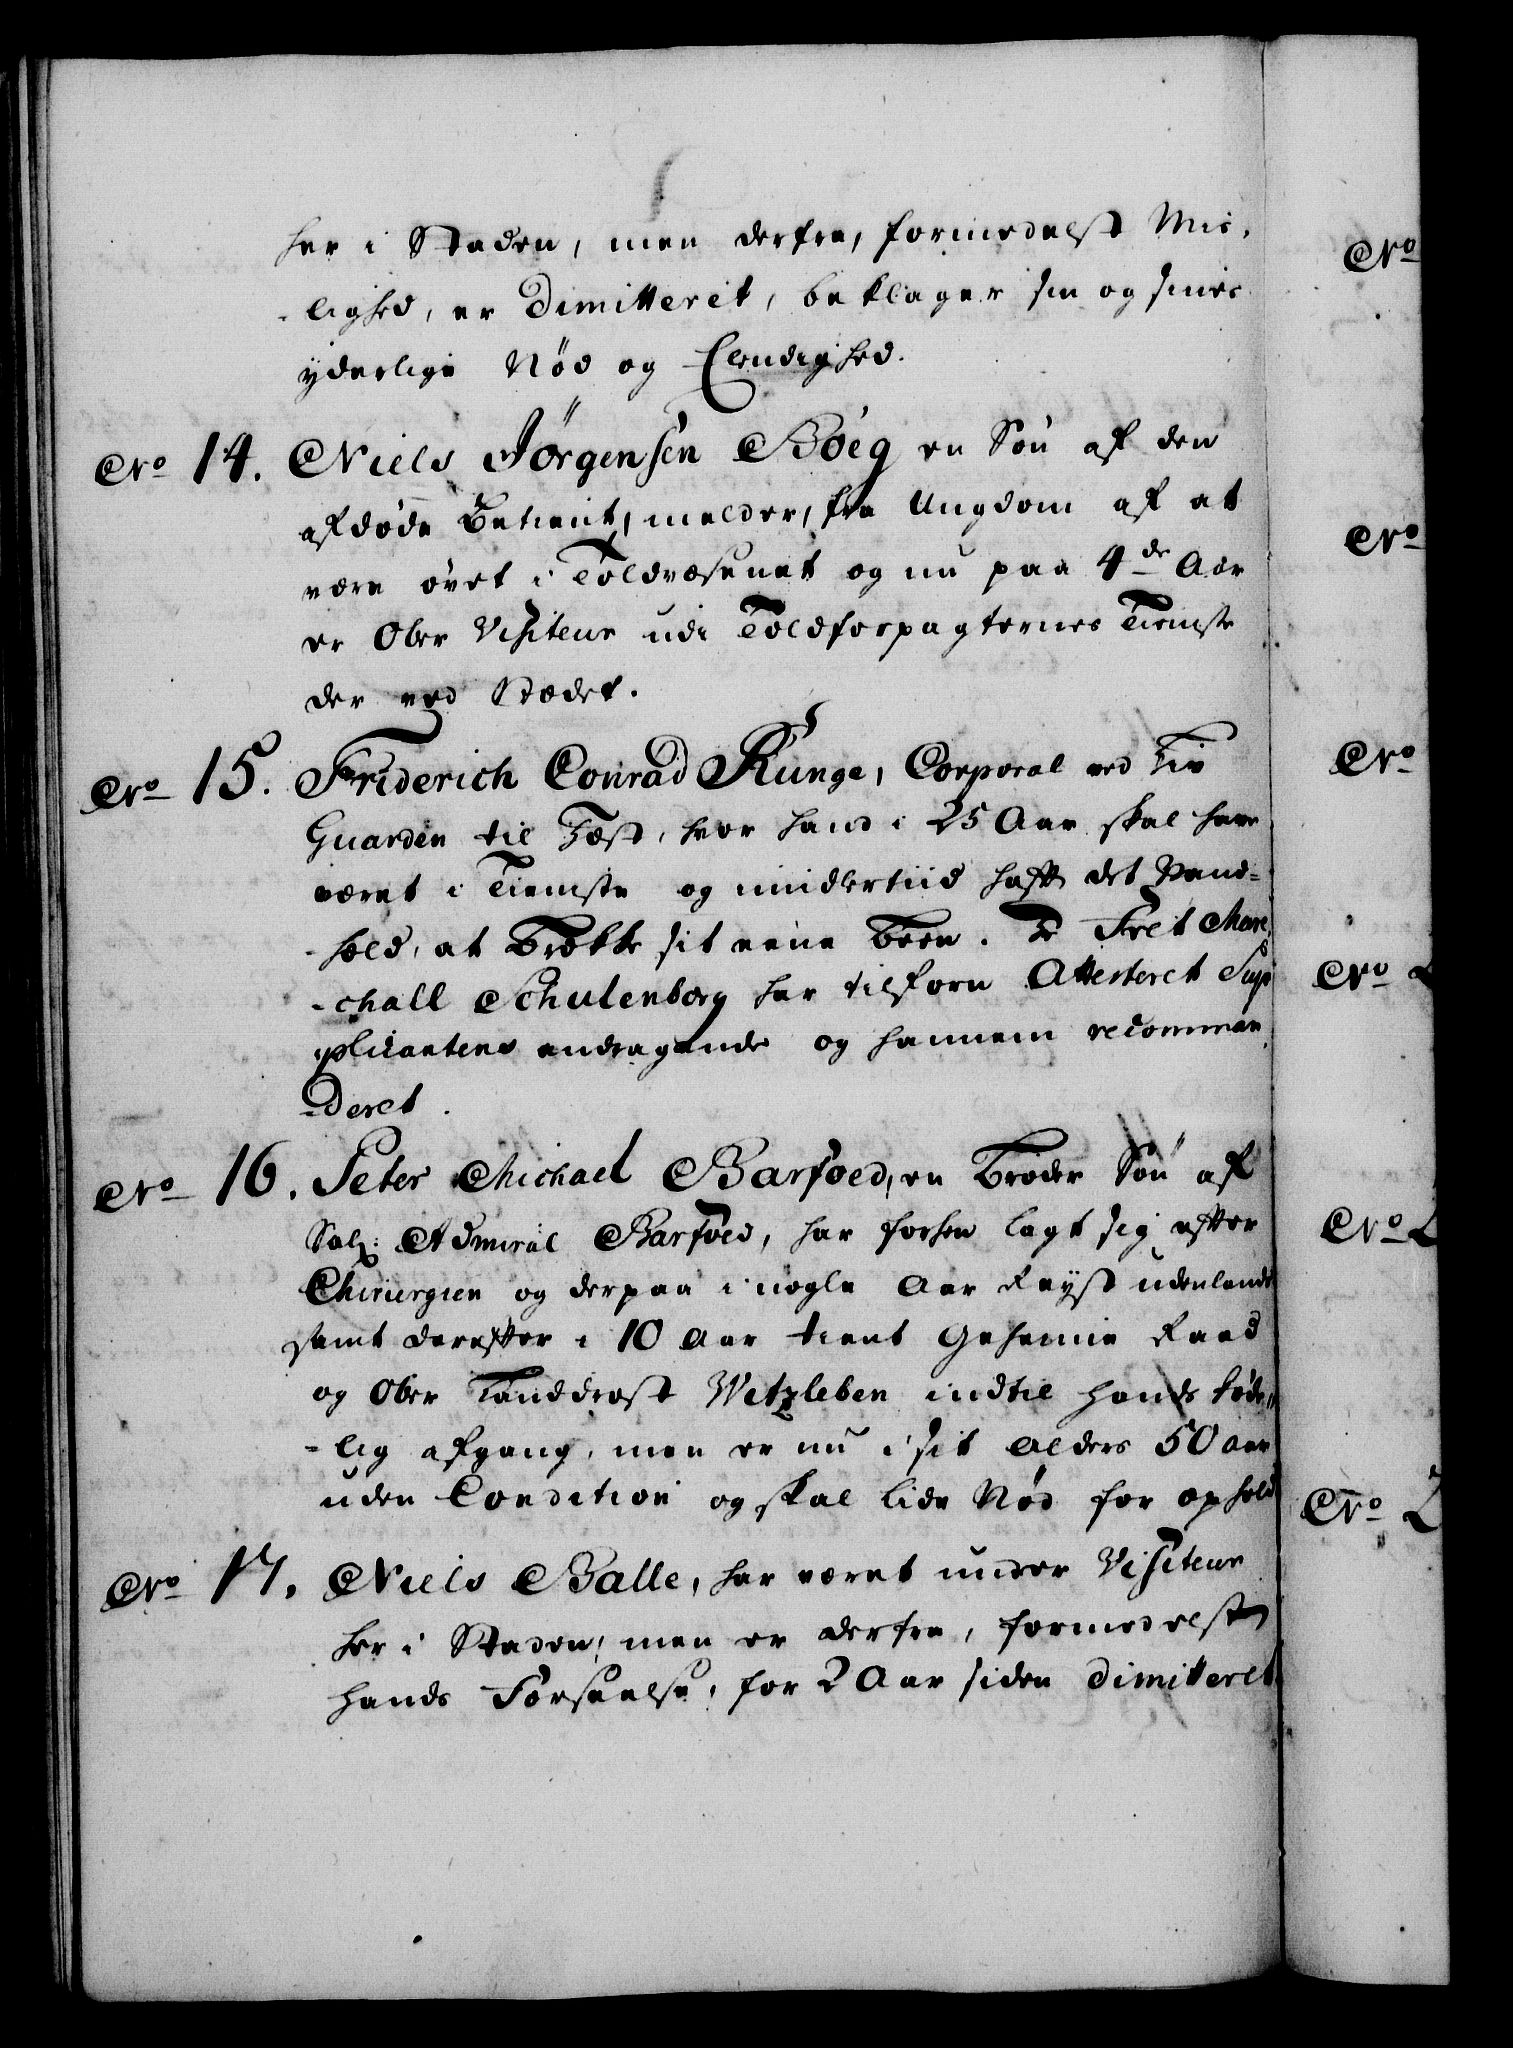 her i Staden, men derfra, formedelst Mis-
-lighed, er Dimitteret, beklager sin og sines
yderlige Nød og Elendighed.
No 14. Niels Jörgensen Böeg en Søn af den
afdøde Betient, melder, fra Ungdom af at
være øvet i Toldvæsenet og nu paa 4de Aar
er Ober Visiteur udi Toldforpagternes Tieniste
der ved Stædet.
No 15. Friderich Conrad Runge, Corporal ved Liv
Guarden til Fæst, hvor hand i 25 Aar skal have
været i Tieniste og imidlertiid hafft det Vand-
-held, at Brække sit eene Been. Felt Mare,
-chall Schulenborg har tilforn Attesteret Sup
plicantens andragende og hannem recomman
-deret.
No 16. Peter Michael Barfoed, en Broder Søn af
Sal: Admiral Barfoed, har forhen lagt sig effter
Chirurgien og derpaa i nogle Aar Reyst udenlands
samt dereffter i 10 Aar tient Geheime Raad
og Ober Landdrost Witzleben indtil hands døde-
-lig afgang, men er nu i sit Alders 50 Aar
uden Condition og skal lide Nød for ophold
No 17. Niels Balle, har været under Visiteur
her i Staden, men er derfra, formedelst
hands Forseelse, for 2 Aar siden Dimitteret
No
No
No
No 2
No 2
No 2